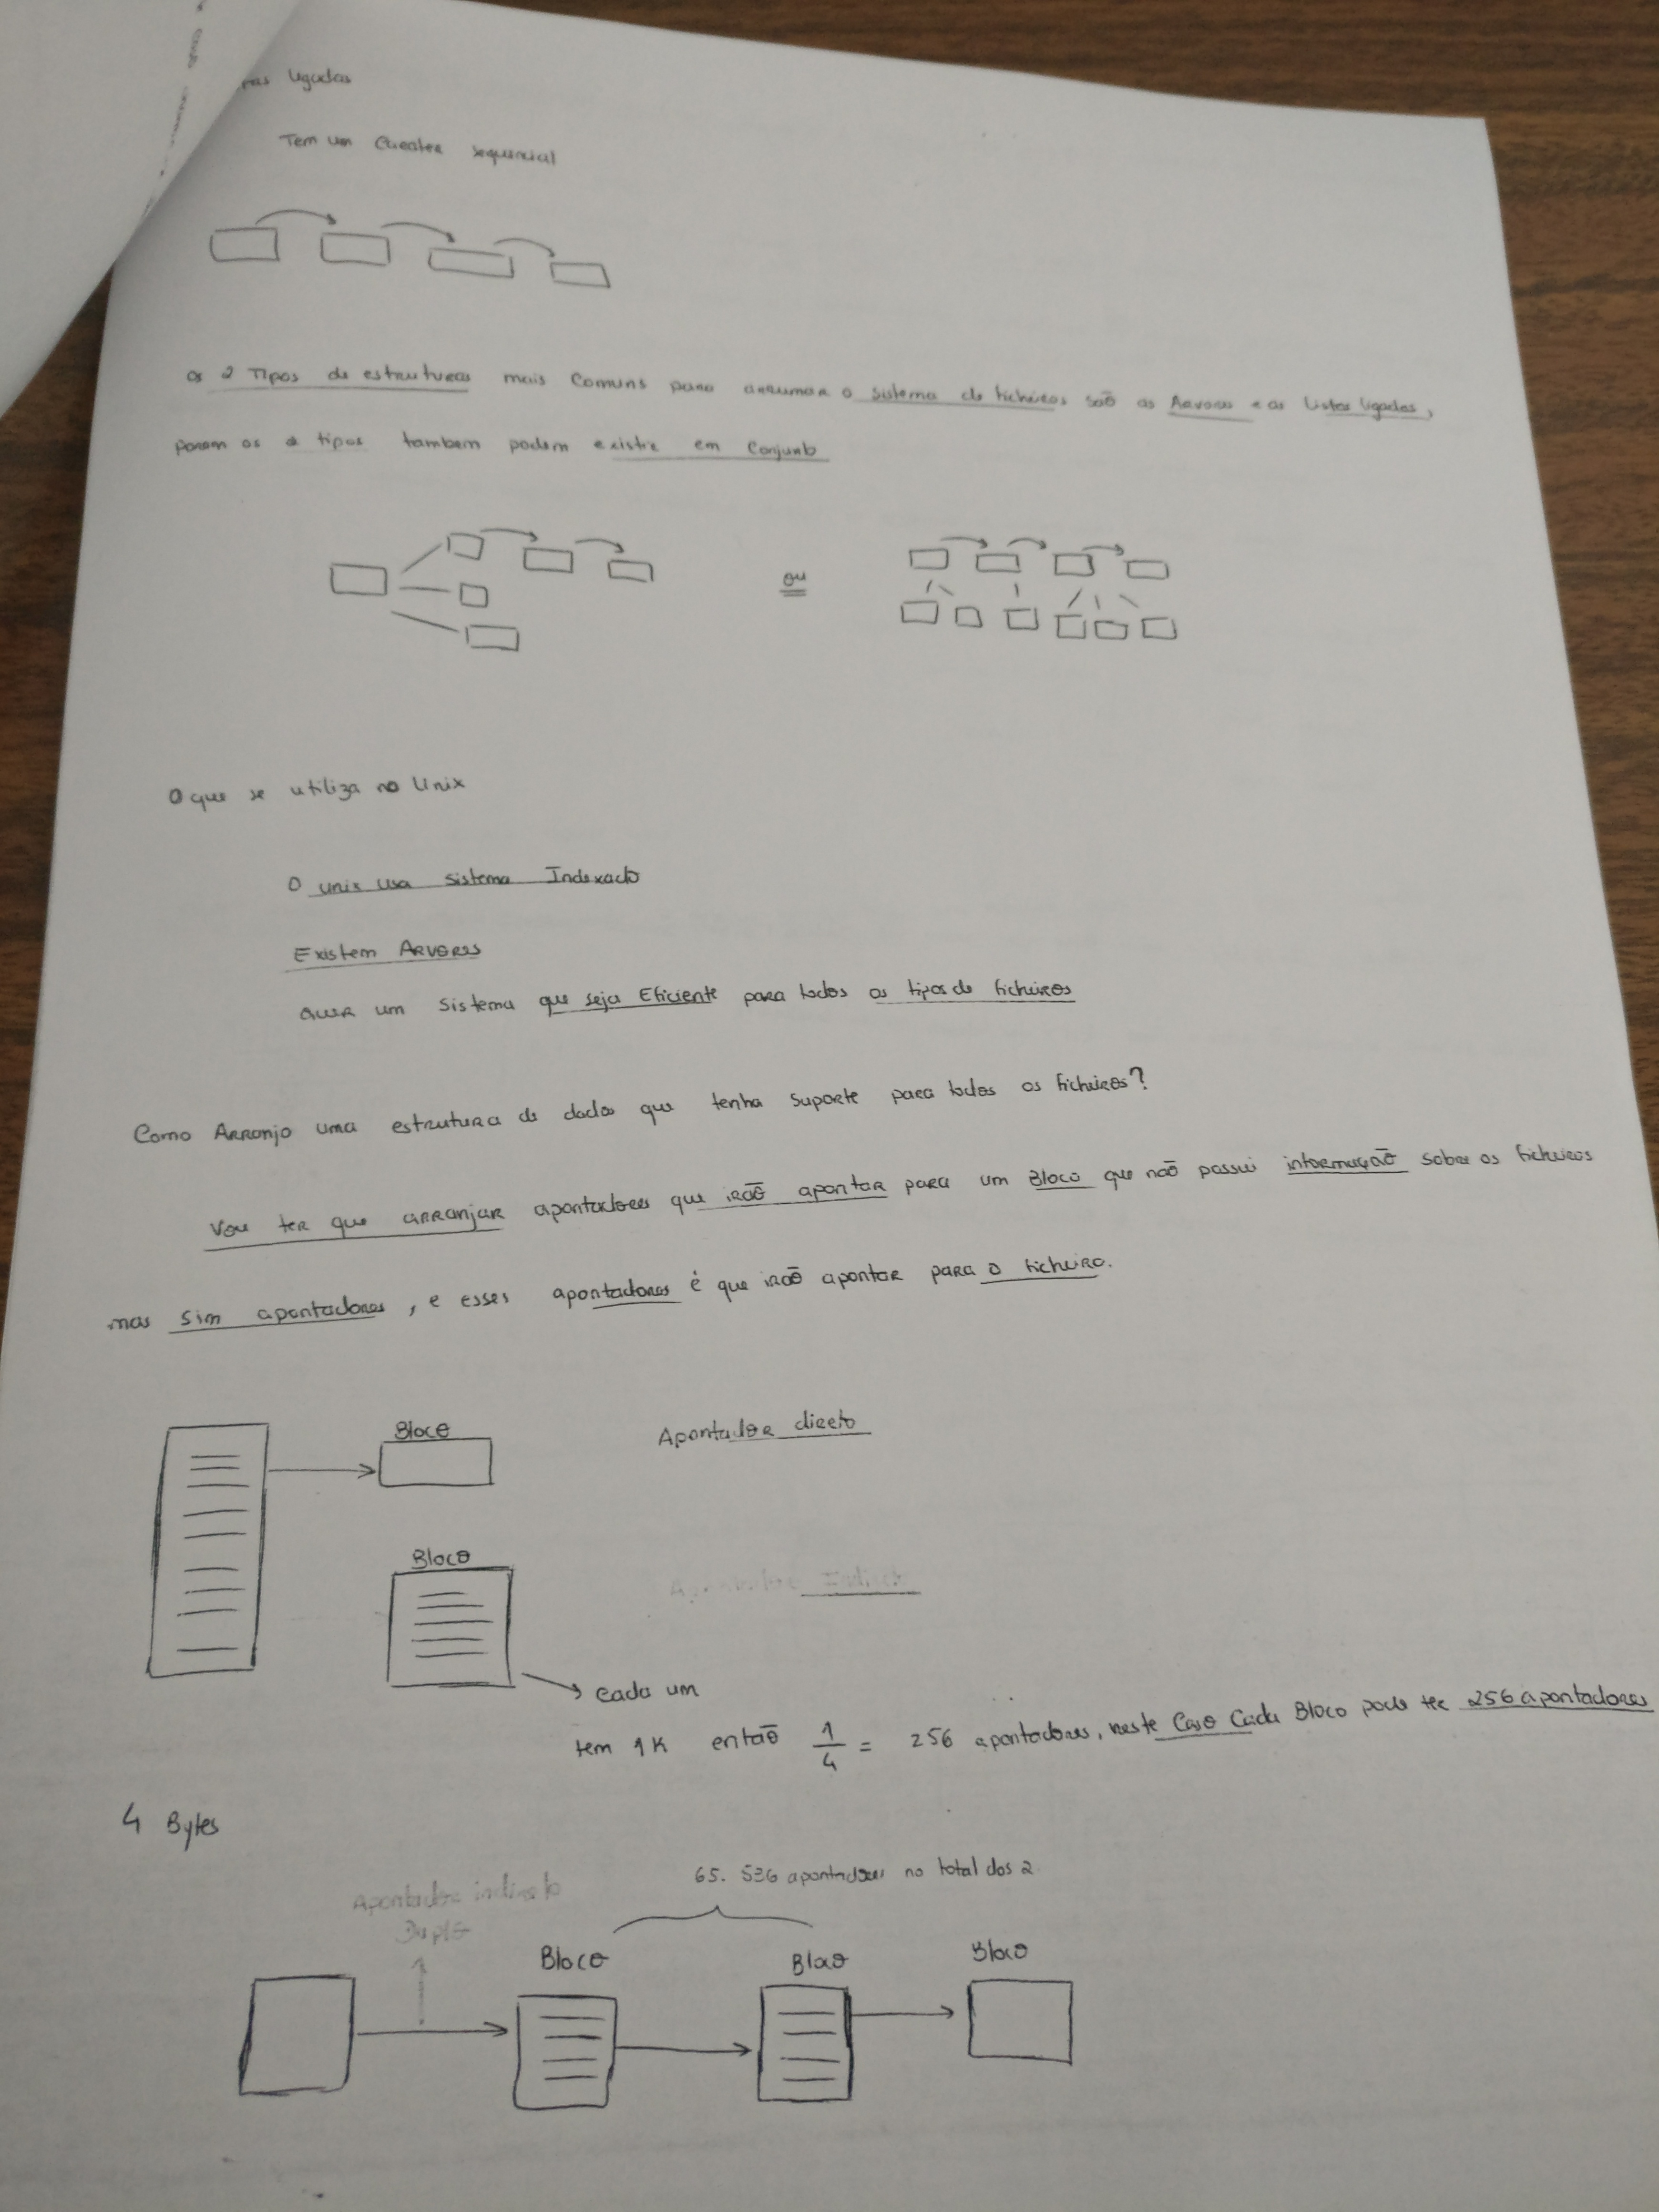 ligadas
Tem um Carater sequencial
Os 2 Tipos de estruturas mais Comuns para arrumar o sistema de ficheiros são as Arvores e as Listas ligadas,
Poram os 2 tipos tambem podem existir em Conjunto
ou
O que se utiliza no Unix
O unix usa sistema Indexado
Existem Arvores
Quer um Sistema que seja Eficiente para todos os tipos de ficheiros
Como Arranjo uma estrutura de dados que tenha Suporte para todos os ficheiros?
Vou ter que arranjar apontadores que irão apontar para um Bloco que não possui informação sobre os ficheiros
mas sim apontadores, e esses apontadores é que irão apontar para o ficheiro.
Bloco
Apontador direto
Bloco
Apontador Indireto
cada um
tem 1K então 1/4 = 256 apontadores, neste Caso Cada Bloco pode ter 256 apontadores
4 Bytes
65.536 apontadores no total dos 2
Apontador indireto
Duplo
Bloco
Bloco
Bloco